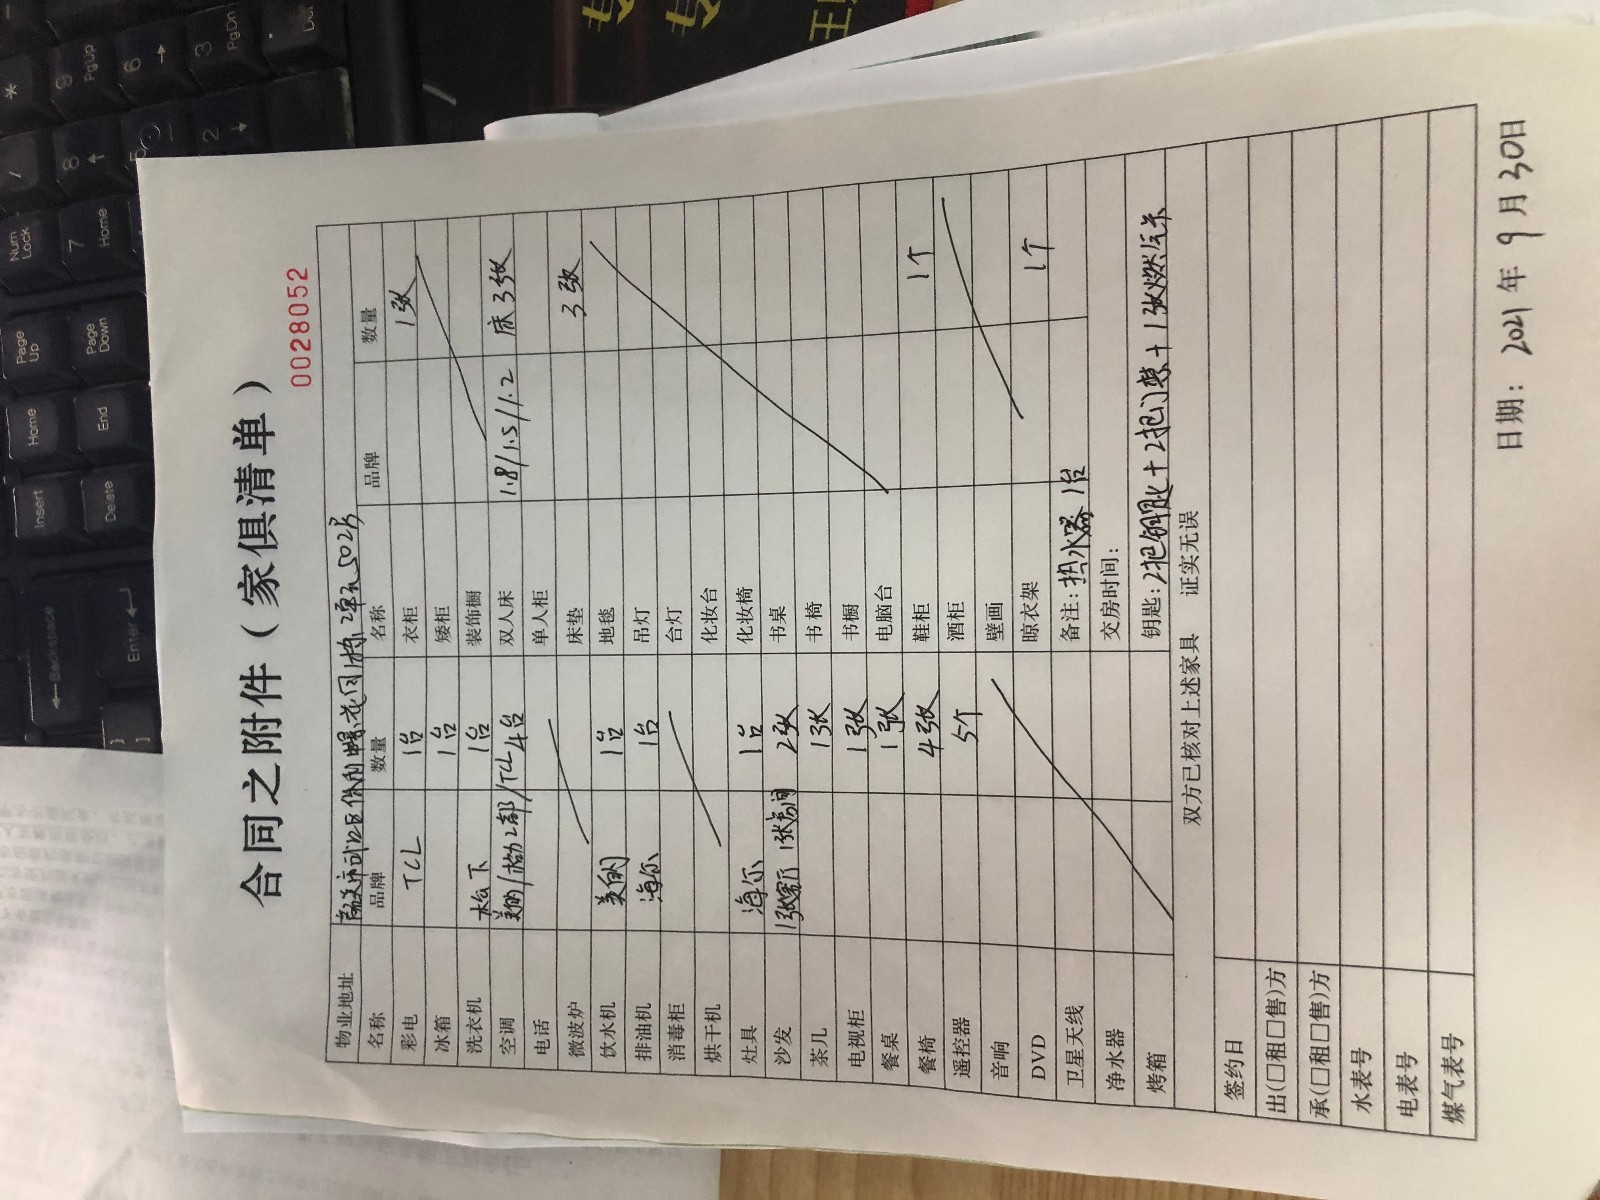 合同之附件（家俱清单）
0028052
物业地址 市武江区 花园 栋2单元502房
名称 品牌 数量 名称 品牌 数量
彩电 TCL 1台 衣柜 1张
冰箱 1台 矮柜
洗衣机 松下 1台 装饰橱
空调 美的/ 2部/TCL 4台 双人床 1.8/1.5/1.2 床3张
电话 单人柜
微波炉 床垫 3张
饮水机 美的 1台 地毯
排油机 海尔 1台 吊灯
消毒柜 台灯
烘干机 化妆台
灶具 海尔 1台 化妆椅
沙发 1张客厅 1张房间 2张 书桌
茶几 1张 书椅
电视柜 1张 书橱
餐桌 1张 电脑台
餐椅 4张 鞋柜 1个
遥控器 5个 酒柜
音响 壁画
DVD 晾衣架 1个
卫星天线 备注：热水器1台
净水器 交房时间：
烤箱 钥匙：2把钥匙+2把门禁+1张燃气卡
双方已核对上述家具 证实无误
签约日
出(□租□售)方
承(□租□售)方
水表号
电表号
煤气表号
日期：2021年9月30日
* 9 PgUp 6 → 3 PgDn . Del
/ 8 ↑ 5 2 ↓
Num Lock 7 Home
Page Up Page Down
Home End
Insert Delete
←Backspace Enter